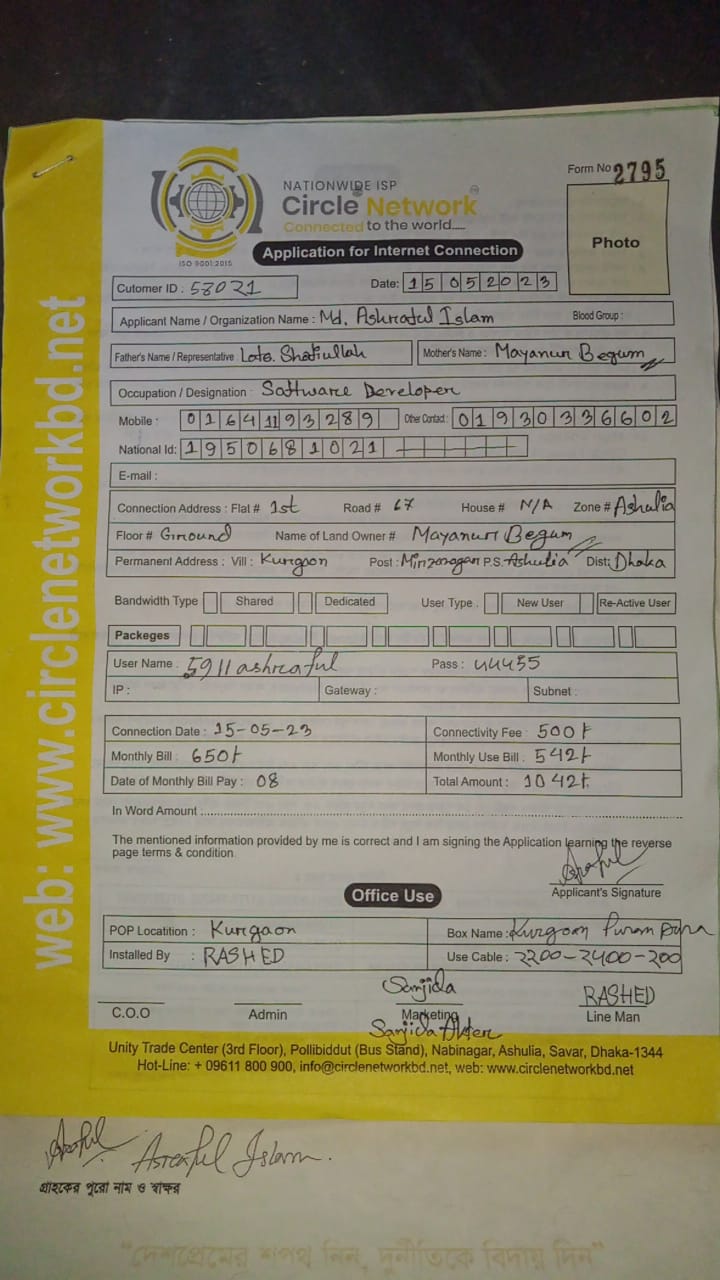 NATIONWIDE ISP
Circle Network
Connected to the world.....
ISO 9001:2015
Form No 2795
Photo
Application for Internet Connection
Cutomer ID : 58021
Date: 15052023
Applicant Name / Organization Name : Md. Ashraful Islam
Blood Group :
Father's Name / Representative : Late. Shafiullah
Mother's Name : Mayanur Begum
Occupation / Designation : Software Developer
Mobile : 01641193289 Other Contact : 01930336602
National Id: 1950681021
E-mail :
Connection Address : Flat # 1st Road # 67 House # N/A Zone # Ashulia
Floor # Ground Name of Land Owner # Mayanur Begum
Permanent Address : Vill : Kurgaon Post : Mirzanagar P.S. Ashulia Dist: Dhaka
Bandwidth Type Shared Dedicated User Type . New User Re-Active User
Packeges
User Name . 5911ashraful Pass : 44455
IP : Gateway : Subnet :
Connection Date : 15-05-23 Connectivity Fee : 500t
Monthly Bill : 650t Monthly Use Bill . 542t
Date of Monthly Bill Pay : 08 Total Amount : 1042t
In Word Amount
The mentioned information provided by me is correct and I am signing the Application learning the reverse
page terms & condition.
Applicant's Signature
Office Use
POP Locatition : Kurgaon Box Name : Kurgaon Puran para
Installed By : RASHED Use Cable : 2200-2400-200
Sanjida RASHED
C.O.O Admin Marketing Line Man
Sanjida Akter
Unity Trade Center (3rd Floor), Pollibiddut (Bus Stand), Nabinagar, Ashulia, Savar, Dhaka-1344
Hot-Line: + 09611 800 900, info@circlenetworkbd.net, web: www.circlenetworkbd.net
web: www.circlenetworkbd.net
Asraful Islam.
গ্রাহকের পুরো নাম ও স্বাক্ষর
"দেশপ্রেমের শপথ নিন, দুর্নীতিকে বিদায় দিন"